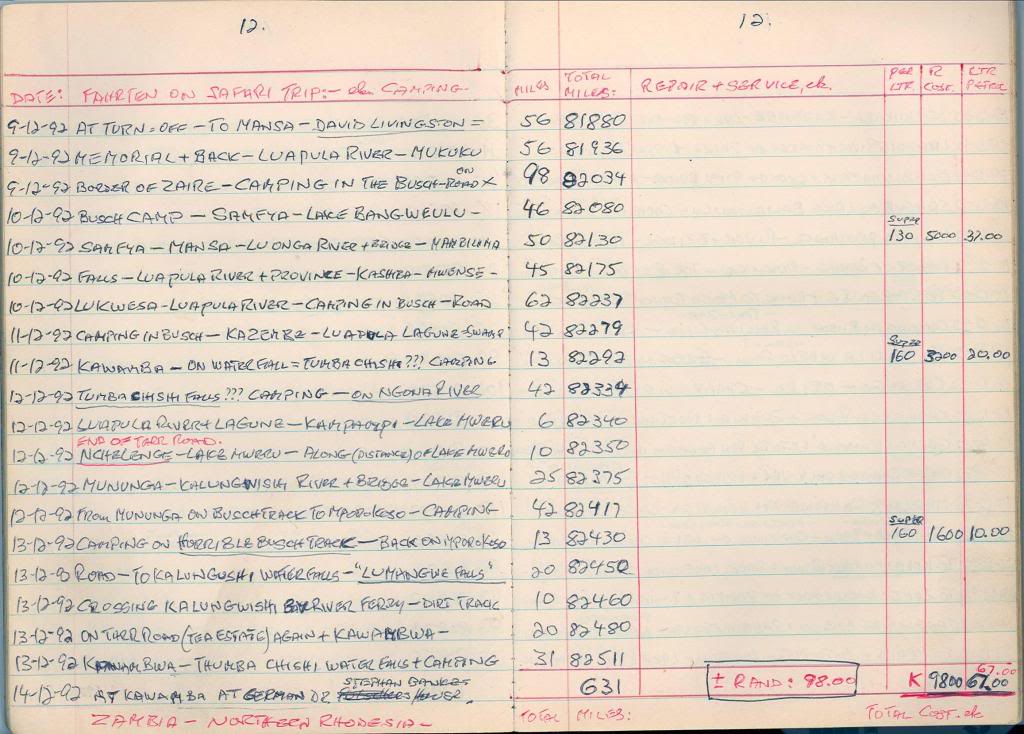 12. 12.
DATE: FAHRTEN ON SAFARI TRIP:- CAMPING MILES TOTAL MILES: REPAIR + SERVICE, etc. PER LTR. R COST. LTR PETROL
9-12-92 AT TURN-OFF - TO MANSA - DAVID LIVINGSTON = 56 81880
9-12-92 MEMORIAL + BACK - LUAPULA RIVER - MUKUKU 56 81936
9-12-92 BORDER OF ZAIRE - CAMPING IN THE BUSCH - ON ROAD X 98 82034
10-12-92 BUSCH CAMP - SAMFYA - LAKE BANGWEULU - 46 82080
10-12-92 SAMFYA - MANSA - LUONGA RIVER + BRIDGE - MAMBILIMA 50 82130 SUPER 130 5000 37.00
10-12-92 FALLS - LUAPULA RIVER + PROVINCE - KASHIBA - MWENSE - 45 82175
10-12-92 LUKWESA - LUAPULA RIVER - CAMPING IN BUSCH - ROAD 62 82237
11-12-92 CAMPING IN BUSCH - KAZEMBE - LUAPULA LAGUNE - 42 82279
11-12-92 KAWAMBA - ON WATERFALL = TUMBA CHISHI ??? CAMPING 13 82292 SUPER 160 3200 20.00
12-12-92 TUMBA CHISHI FALLS ??? CAMPING - ON NGONA RIVER 42 82334
12-12-92 LUAPULA RIVER + LAGUNE - - LAKE MWERU 6 82340
END OF TARR ROAD.
12-12-92 NCHELENGE - LAKE MWERU - ALONG (DISTANCE) OF LAKE MWERU 10 82350
12-12-92 MUNUNGA - KALUNGWISHI RIVER + BRIDGE - LAKE MWERU 25 82375
12-12-92 FROM MUNUNGA ON BUSCHTRACK TO MPOROKOSO - CAMPING 42 82417
13-12-92 CAMPING ON HORRIBLE BUSCH TRACK - BACK ON MPOROKOSO 13 82430 SUPER 160 1600 10.00
13-12-90 ROAD - TO KALUNGUSHI WATERFALLS - "LUMANGWE FALLS" 20 82450
13-12-92 CROSSING KALUNGWISHI RIVER FERRY - DIRT TRACK 10 82460
13-12-92 ON TARR ROAD (TEA ESTATE) AGAIN + KAWAMBWA - 20 82480
13-12-92 KAWAMBWA - THUMBA CHISHI WATERFALLS + CAMPING 31 82511
14-12-92 AT KAWAMBA AT GERMAN DR. STEPHAN 631 ± RAND: 98.00 K 9800 67.00 67.00
ZAMBIA - NORTHERN RHODESIA - TOTAL MILES: TOTAL COST. etc